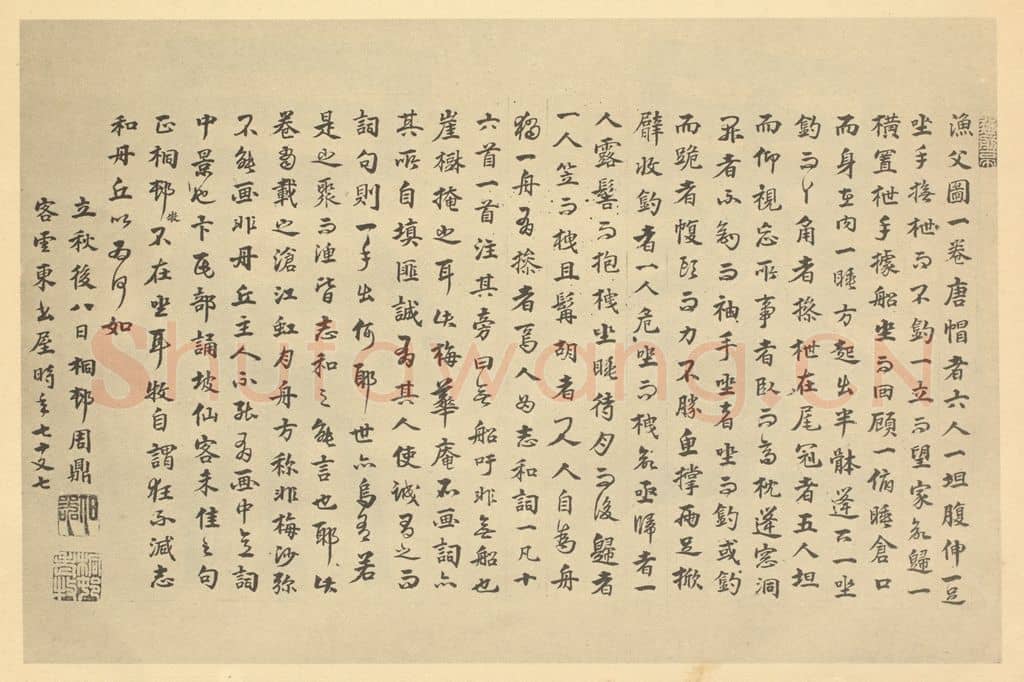 漁父圖一卷唐帽者六人一坦腹伸一足
坐手搖枻而不釣一立而望家欲歸一
橫置枻手據船坐而回顧一俯睡倉口
而身在內一睡方起出半體蓬下一坐
釣而丫角者搽枻在尾冠者五人坦
而仰視忘所事者臥而高枕蓬窓洞
開者不釣而袖手坐者坐而釣或釣
而跪者愎而力不勝魚撐兩足掀
臂收釣者一人危坐而棹若亟歸者一
人露髻而抱棹坐睡待月而後歸者
一人笠而棹且髯胡者又人自為舟
獨一舟有搽者焉人為志和詞一凡十
六首一首注其旁曰無船吁非無船也
崖樹掩之耳此梅華庵不画詞亦
其所自填匪誠有其人使誠有之而
詞句則一手出何耶世亦烏有若
是之衆而漁皆志和之能言也耶此
卷當載之滄江虹月舟方称非梅沙弥
不能画非丹丘主人不能有画中無詞
中景也卞氏部誦坡仙客未佳之句
正桐邨牧不在坐耳牧自謂狂不減志
和丹丘以為何如
立秋後八日桐邨周鼎
客雲東書屋時年七十又七
伯器
桐邨老牧
Shufawang.CN